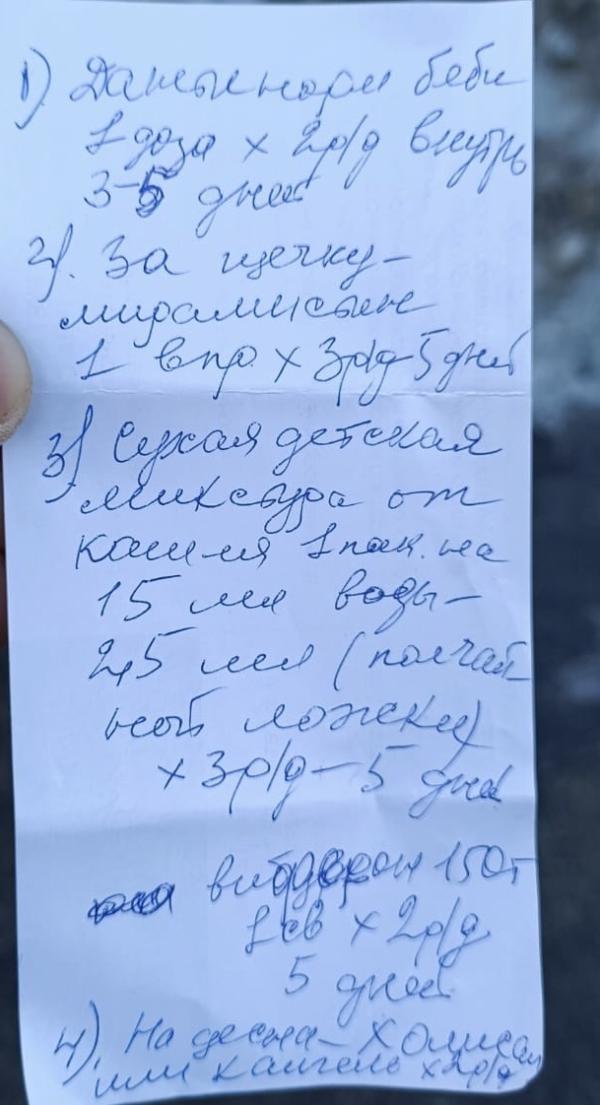 1) Дантинорм беби
1 доза х 2р/д внутрь
3-5 дней
2). За щечку -
мирамистин
1 впр. х 3р/д - 5 дней
3) Сухая детская
микстура от
кашля 1 пак. на
15 мл воды -
2,5 мл (пол чай
ной ложки)
х 3р/д - 5 дней
150т
1 св х 2р/д
5 дней
4). На десна - Холисал
или Калгель х 2р/д